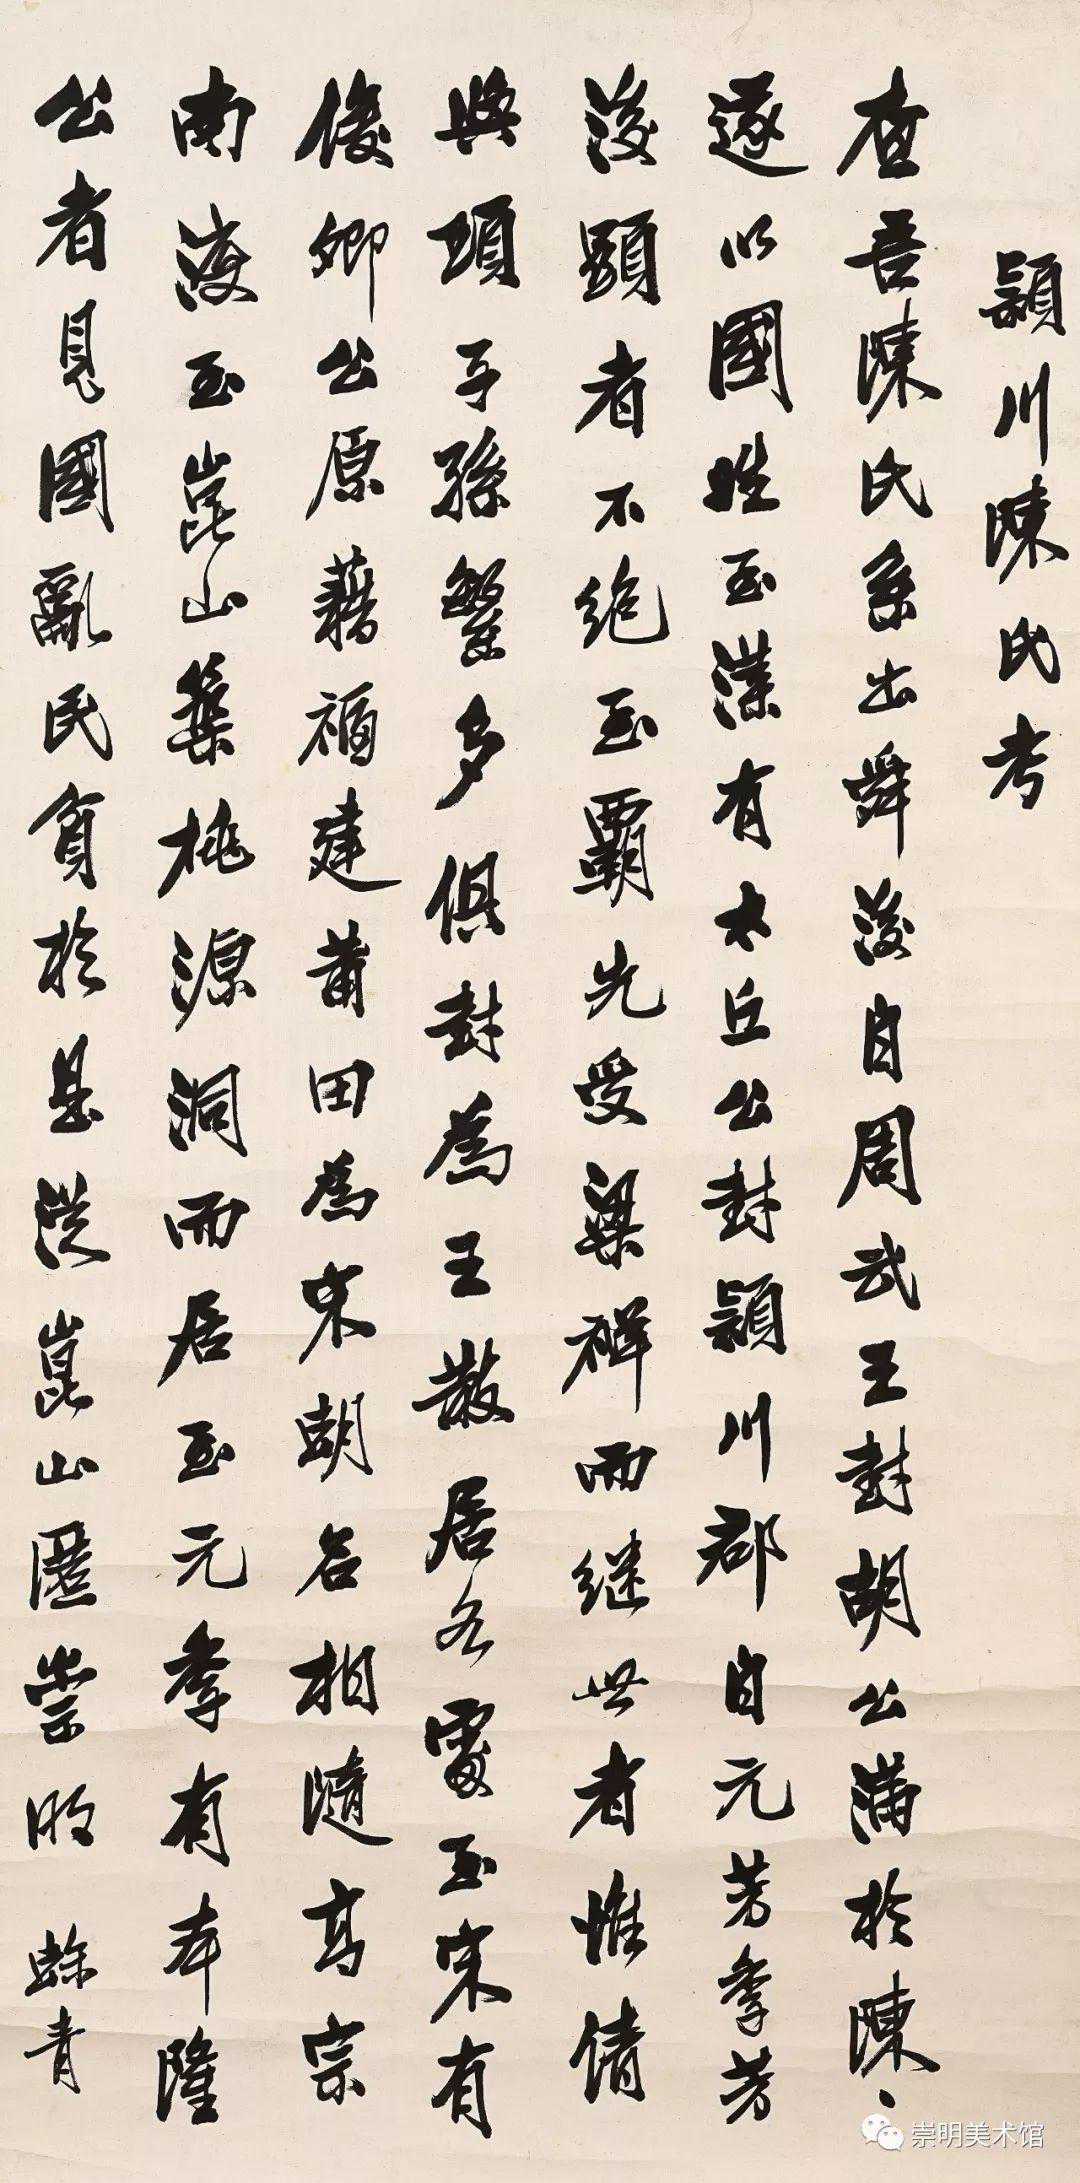 潁川陳氏考
查吾陳氏系出舜後自周武王封胡公滿於陳〻
遂以國姓至漢有太丘公封潁川郡自元芳季芳
後顯者不絕至霸先受梁禪而继世者惟倩
與頊子孫繁多俱封為王散居各處至宋有
俊卿公原藉福建莆田為宋朝名相隨高宗
南渡至崑山築桃源洞而居至元季有奉隆
公者見國亂民貧於是從崑山匿崇明 餘青
崇明美术馆